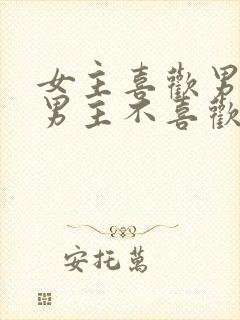 女主喜歡男
男主不喜歡
安托萬